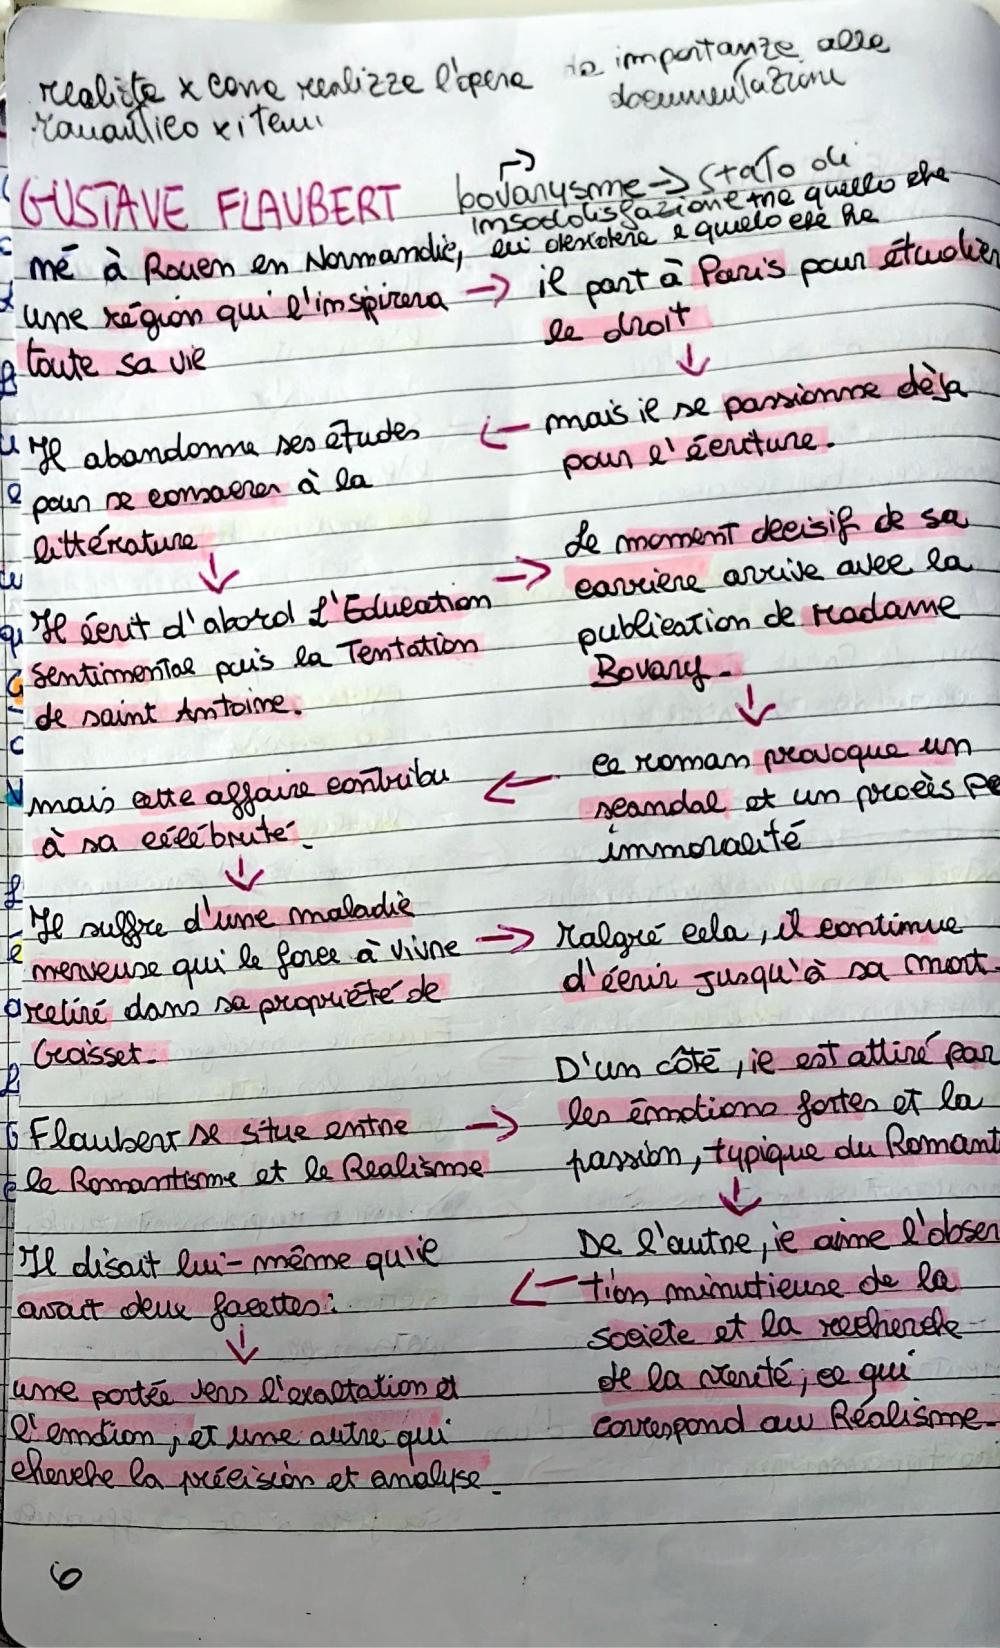 realista x come realizza l'opera
romantico x i temi
da importanza alla
documentazione
GUSTAVE FLAUBERT
bovarysme → stato di
insoddisfazione tra quello che
lui desidera e quello che ha
né à Rouen en Normandie,
une région qui l'inspirera →
toute sa vie
il part à Paris pour étudier
le droit
↓
mais il se passionne déja
pour l'écriture.
←
Il abandonne ses études
pour se consacrer à la
littérature
↓
Il écrit d'abord l'Education
Sentimental puis la Tentation
de saint Antoine.
→
Le moment decisif de sa
carrière arrive avec la
publication de Madame
Bovary.
↓
ce roman provoque un
scandal et un procès
immoralité
←
mais cette affaire contribu
à sa célébrité.
↓
Il suffre d'une maladie
nerveuse qui le force à vivre →
retiré dans sa propriété de
Croisset.
Malgré cela, il continue
d'écrir jusqu'à sa mort.
Flaubert se situe entre →
le Romantisme et le Realisme
D'un côté, il est attiré par
les émotions fortes et la
passion, typique du Romant
↓
De l'autre, il aime l'obser
tion minutieuse de la
societe et la recherche
de la verité, ce qui
correspond au Réalisme.
←
Il disait lui-même qu'il
avait deux facettes:
↓
une portée vers l'exaltation et
l'emotion, et une autre qui
cherche la précision et analyse.
6